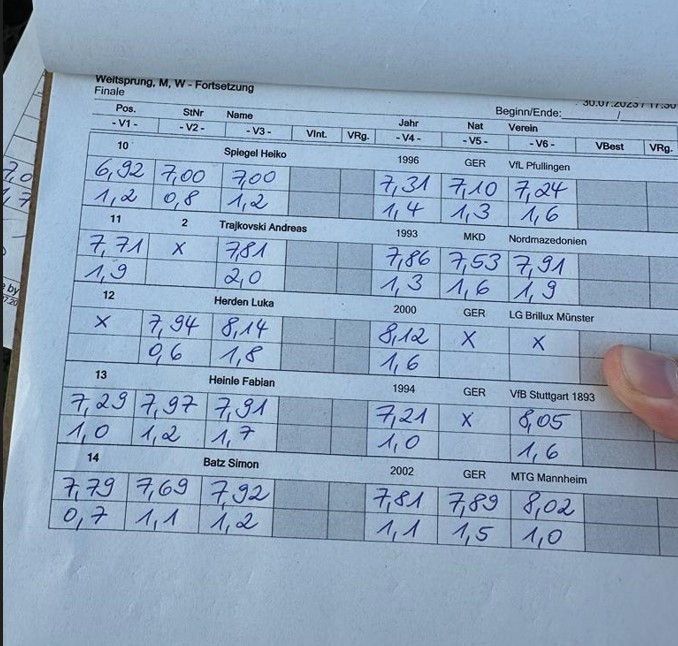 Weitsprung, M, W - Fortsetzung
Finale
30.07.2023 / 17:30
Beginn/Ende: /
Pos. StNr Name Jahr Nat Verein
- V1 - - V2 - - V3 - VInt. VRg. - V4 - - V5 - - V6 - VBest VRg.
10 Spiegel Heiko 1996 GER VfL Pfullingen
6,92 7,00 7,00 7,31 7,10 7,24
1,2 0,8 1,2 1,4 1,3 1,6
11 2 Trajkovski Andreas 1993 MKD Nordmazedonien
7,71 x 7,81 7,86 7,53 7,91
1,9 2,0 1,3 1,6 1,9
12 Herden Luka 2000 GER LG Brillux Münster
x 7,94 8,14 8,12 x x
0,6 1,8 1,6
13 Heinle Fabian 1994 GER VfB Stuttgart 1893
7,29 7,97 7,91 7,21 x 8,05
1,0 1,2 1,7 1,0 1,6
14 Batz Simon 2002 GER MTG Mannheim
7,79 7,69 7,92 7,81 7,89 8,02
0,7 1,1 1,2 1,1 1,5 1,0